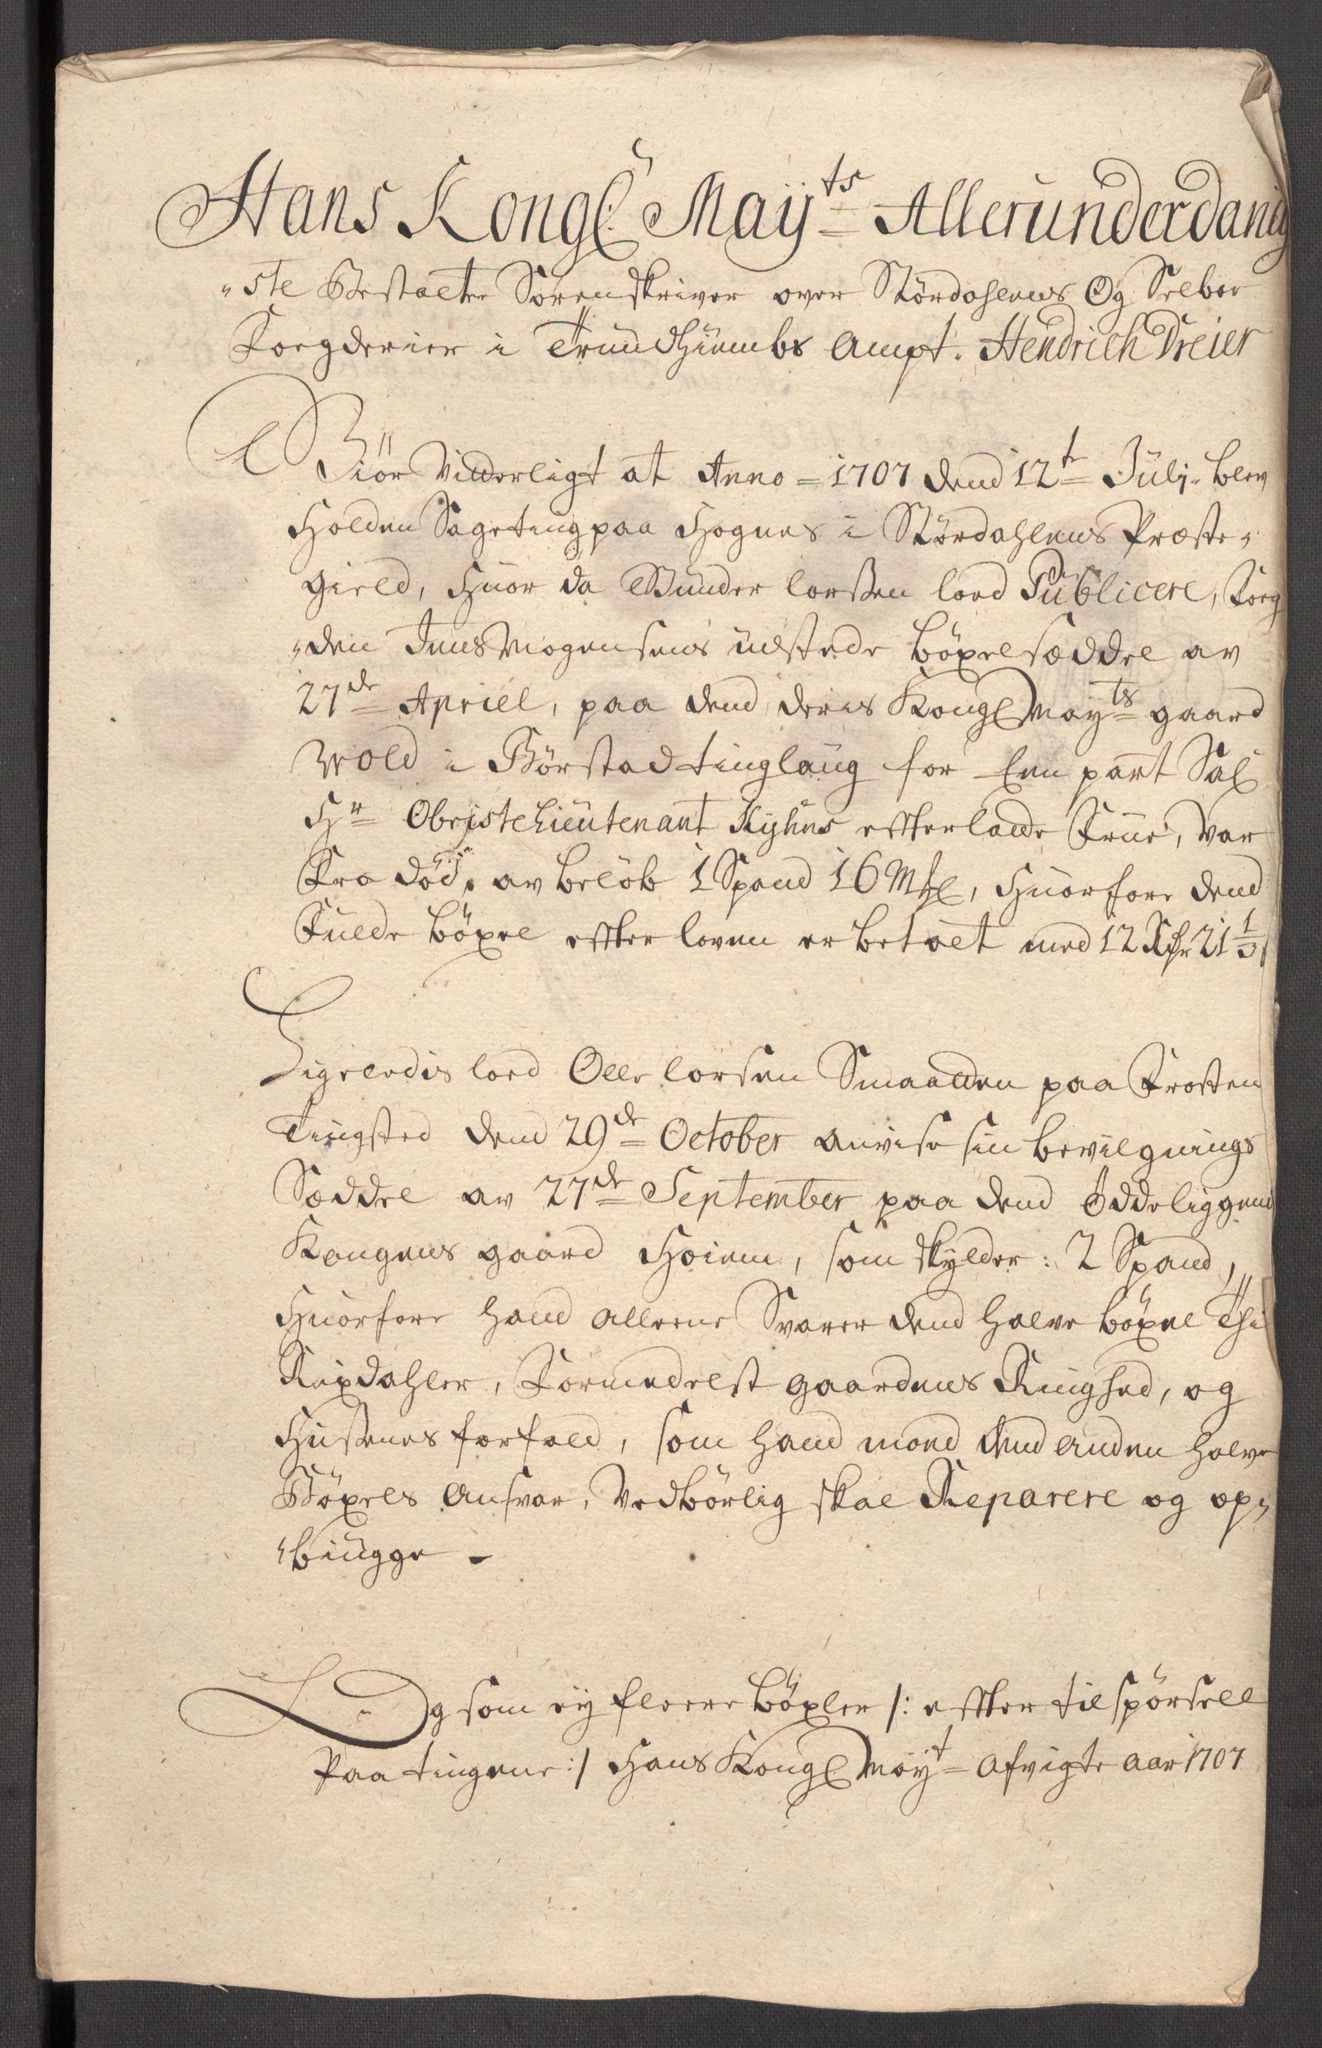 Hans Kongl: Maÿts Allerunderdanig
"ste Bestalter Sorenskriver over Størdahlens Og Selboe
Fogderier i Trundhiembs Ampt. Hendrich Dreier
Giør Vitterligt at Anno 1707 dend 12t Julj blev
Holden Sageting paa Hognes i Størdahlens Præste„
gield, Huor da Gunder Larsen lod Publicere, Fog„
„den Jens Mogensens udstede Bøxelsæddel av
27de Apriel, paa dend deris Kongl Mayts gaard
Wold i Børstad tinglaug for Een part Sal
Hr ObristeLieutenant Kÿhns efterlatte Frue, var
Fra død, av beløb 1 Spand 16 Mkl, Huorfore dend
Fulde bøxel efter loven er betalt med 12 Rdr 21 1/3 s
Ligeledis lod Olle Larsen Smaadden paa Frosten
Tingsted dend 29de October anvise sin bevilgnings
Sæddel av 27de September paa dend Øddeliggend
Kongens gaard Hoiem, som skylder: 2 Spand,
Huorfore hand alleene Svarer dend halve bøxel Thi
Rixdahler, Formedelst gaardens Ringhed, og
Husenes forfald, som hand moed dend anden halve
Bøxels Ansvar, Vedbørlig skal Reparere og op„
„biugge -
Og som eÿ fleere bøxler /: efter tilspørsell
Paa tingene :/ Hans Kongl Maÿt Afvigte Aar 1707